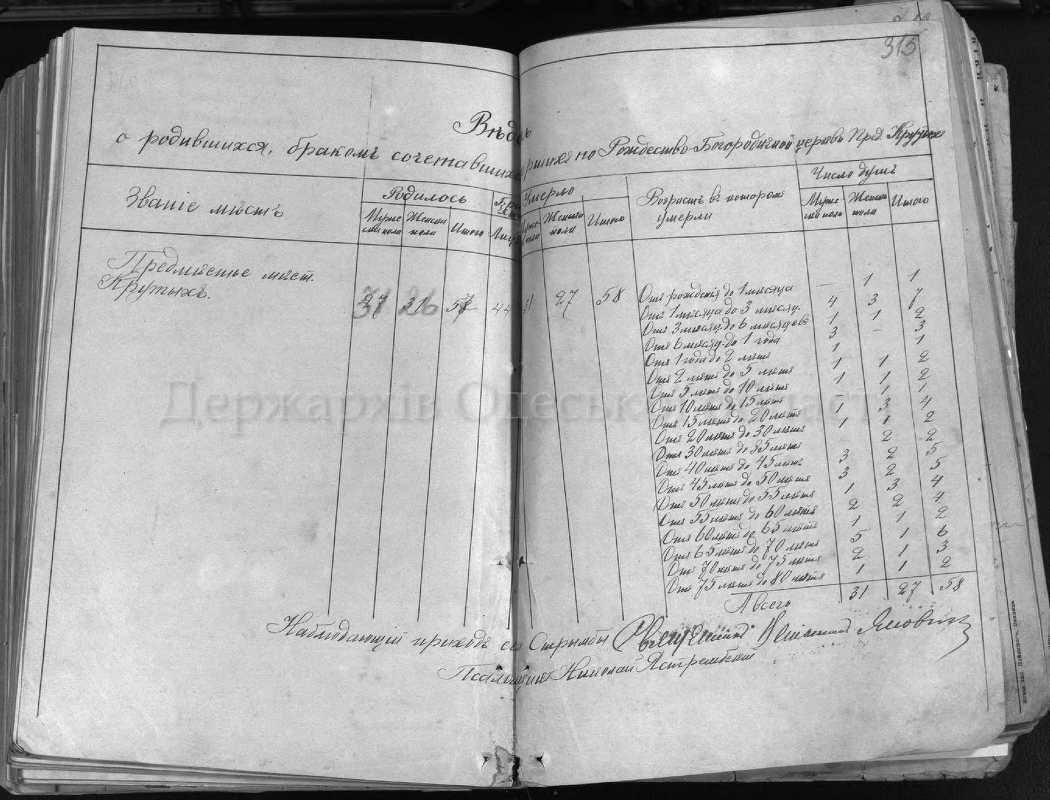 315
о родившихся, бракомъ сочетавшихся по Рождество-Богородичной церкви Пред. Крутыхъ
Званіе мѣстъ
Родилось
Умерло
Возрастъ въ котором умерли
Число душъ
Мужескаго пола
Женска пола
Итого
Женска пола
Итого
Мужескаго пола
Женска пола
Итого
Предмѣстье мѣст.
Крутыхъ.
44
27
58
Отъ рожденія до 1 мѣсяца 1 1
Отъ 1 мѣсяца до 3 мѣсяц. 4 3 7
Отъ 3 мѣсяц. до 6 мѣсяцовъ 1 1 2
Отъ 6 мѣсяц. до 1 года 3 - 3
Отъ 1 года до 2 лѣтъ 1 1
Отъ 2 лѣтъ до 5 лѣтъ 1 1 2
Отъ 5 лѣтъ до 10 лѣтъ 1 1 2
Отъ 10 лѣтъ до 15 лѣтъ 1 1
Отъ 15 лѣтъ до 20 лѣтъ 1 3 4
Отъ 20 лѣтъ до 30 лѣтъ 1 1 2
Отъ 30 лѣтъ до 35 лѣтъ 2 2
Отъ 40 лѣтъ до 45 лѣтъ 3 2 5
Отъ 45 лѣтъ до 50 лѣтъ 3 2 5
Отъ 50 лѣтъ до 55 лѣтъ 1 3 4
Отъ 55 лѣтъ до 60 лѣтъ 2 2 4
Отъ 60 лѣтъ до 65 лѣтъ 1 1 2
Отъ 65 лѣтъ до 70 лѣтъ 5 1 6
Отъ 70 лѣтъ до 75 лѣтъ 2 1 3
Отъ 75 лѣтъ до 80 лѣтъ 1 1 2
А всего 31 27 58
Держархів Одеської області
Наблюдающій приходъ Священникъ
Николай Ястремскій